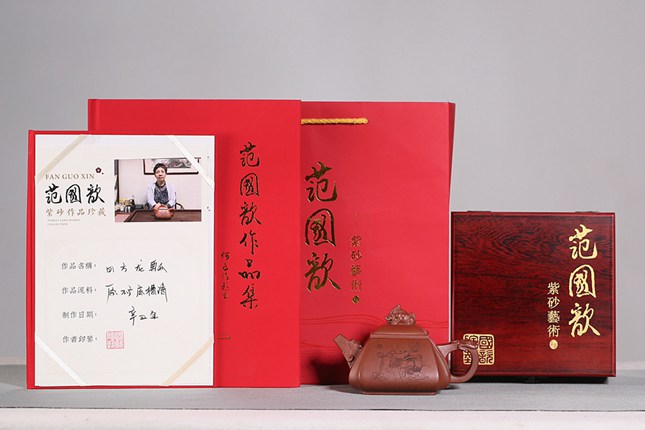 FAN GUO XIN
范國歆
紫砂作品珍藏
作品名稱：四方龙
作品泥料：
制作日期：辛丑年
作者印鑒：
范國歆作品集
范國歆
紫砂藝術
范國歆
紫砂藝術